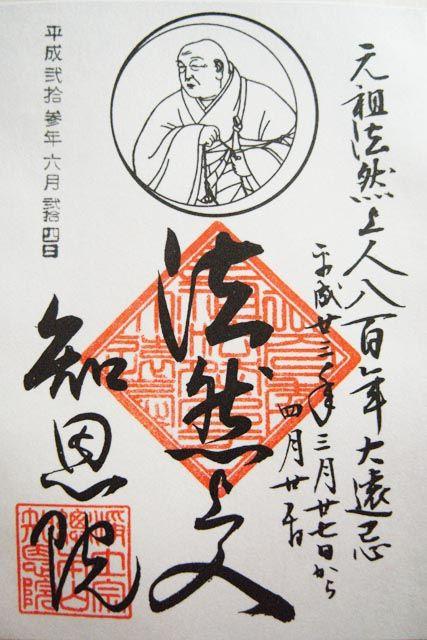 元祖法然上人八百年大遠忌
平成廿三年三月廿七日から
四月廿五日
法然上人
知恩院
平成弐拾参年六月弐拾四日
浄土宗
總本山
知恩院